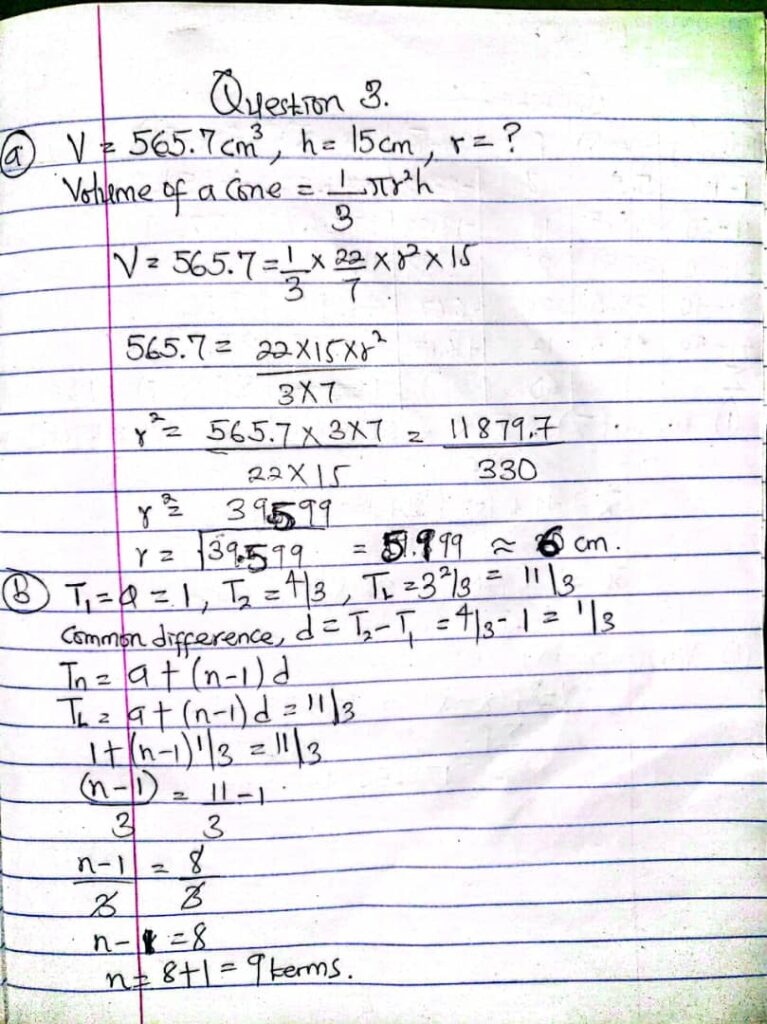 Question 3.
(a) V = 565.7cm³, h = 15cm, r = ?
Volume of a Cone = 1/3 πr²h
V = 565.7 = 1/3 × 22/7 × r² × 15
565.7 = 22×15×r² / 3×7
r² = 565.7×3×7 / 22×15 = 11879.7 / 330
r² = 39599
r = √39.599 = 5.999 ≈ 6 cm.
(b) T₁ = a = 1, T₂ = 4/3, T_L = 3 2/3 = 11/3
Common difference, d = T₂ - T₁ = 4/3 - 1 = 1/3
Tn = a + (n-1)d
T_L = a + (n-1)d = 11/3
1 + (n-1)1/3 = 11/3
(n-1)/3 = 11/3 - 1
n-1/3 = 8/3
n-1 = 8
n = 8+1 = 9 terms.